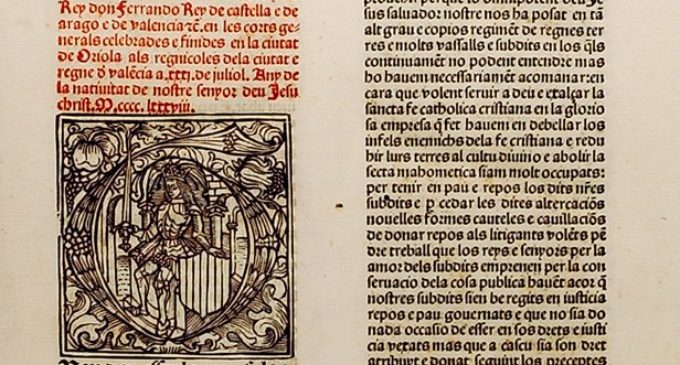 Rey don Ferrando Rey de castella e de
arago e de valencia ⁊c̃. en les corts ge-
nerals celebrades e finides en la ciutat
de Oriola als regnicoles dela ciutat e
regne d̓ valẽcia a .xxxj. de juliol. Any de
la nativitat de nostre senyor deu Jesu
christ. M. cccc. lxxxviij.
sus salvador nostre nos ha posat en tã
alt grau e copios regimẽt de regnes ter
res e molts vassalls e subdits en los q̃ls
continuamẽt no podent entendre mas
ho havem necessariament acomanar en
cara que volent servir a deu e exalçar la
sancta fe catholica cristiana en la glorio
sa empresa q̃ fet havem en debellar los
infels enemichs dela fe cristiana e redu
hir lurs terres al cultu divino e abolir la
secta mahometica siam molt occupats:
per tenir en pau e repos los dits nr̃es
subdits e p̱ cedar les dites altercaciõs
novelles formes cauteles e cavillaciõs
de donar repos als litigants volẽts pẽ
dre treball que los reys e senyors per la
amor dels subdits emprenen per la con
servacio dela cosa publica havẽt acor q̃
nostres subdits sien be regits en iusticia
repos e pau governats e que no sia do
nada occasio de esser en sos drets e iusti
cia vexats mas que a cascu sia son dret
attribuyt e donat seguint los preceptes